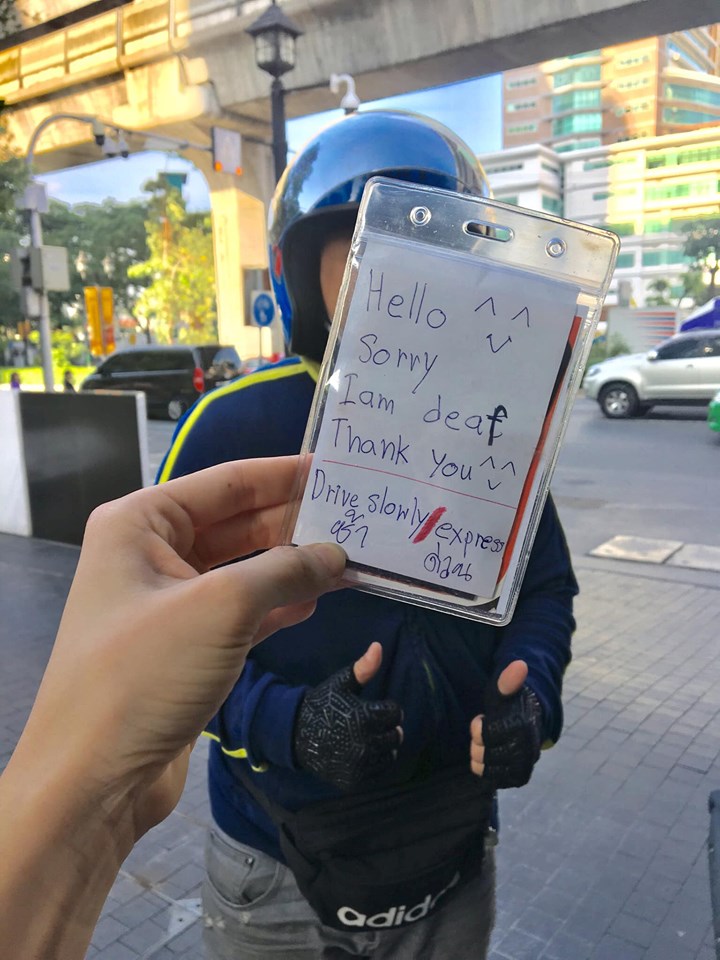 Hello ^ ^
Sorry
I am deaf
Thank you ^ ^
Drive slowly/express
ช้า ด่วน
adidas